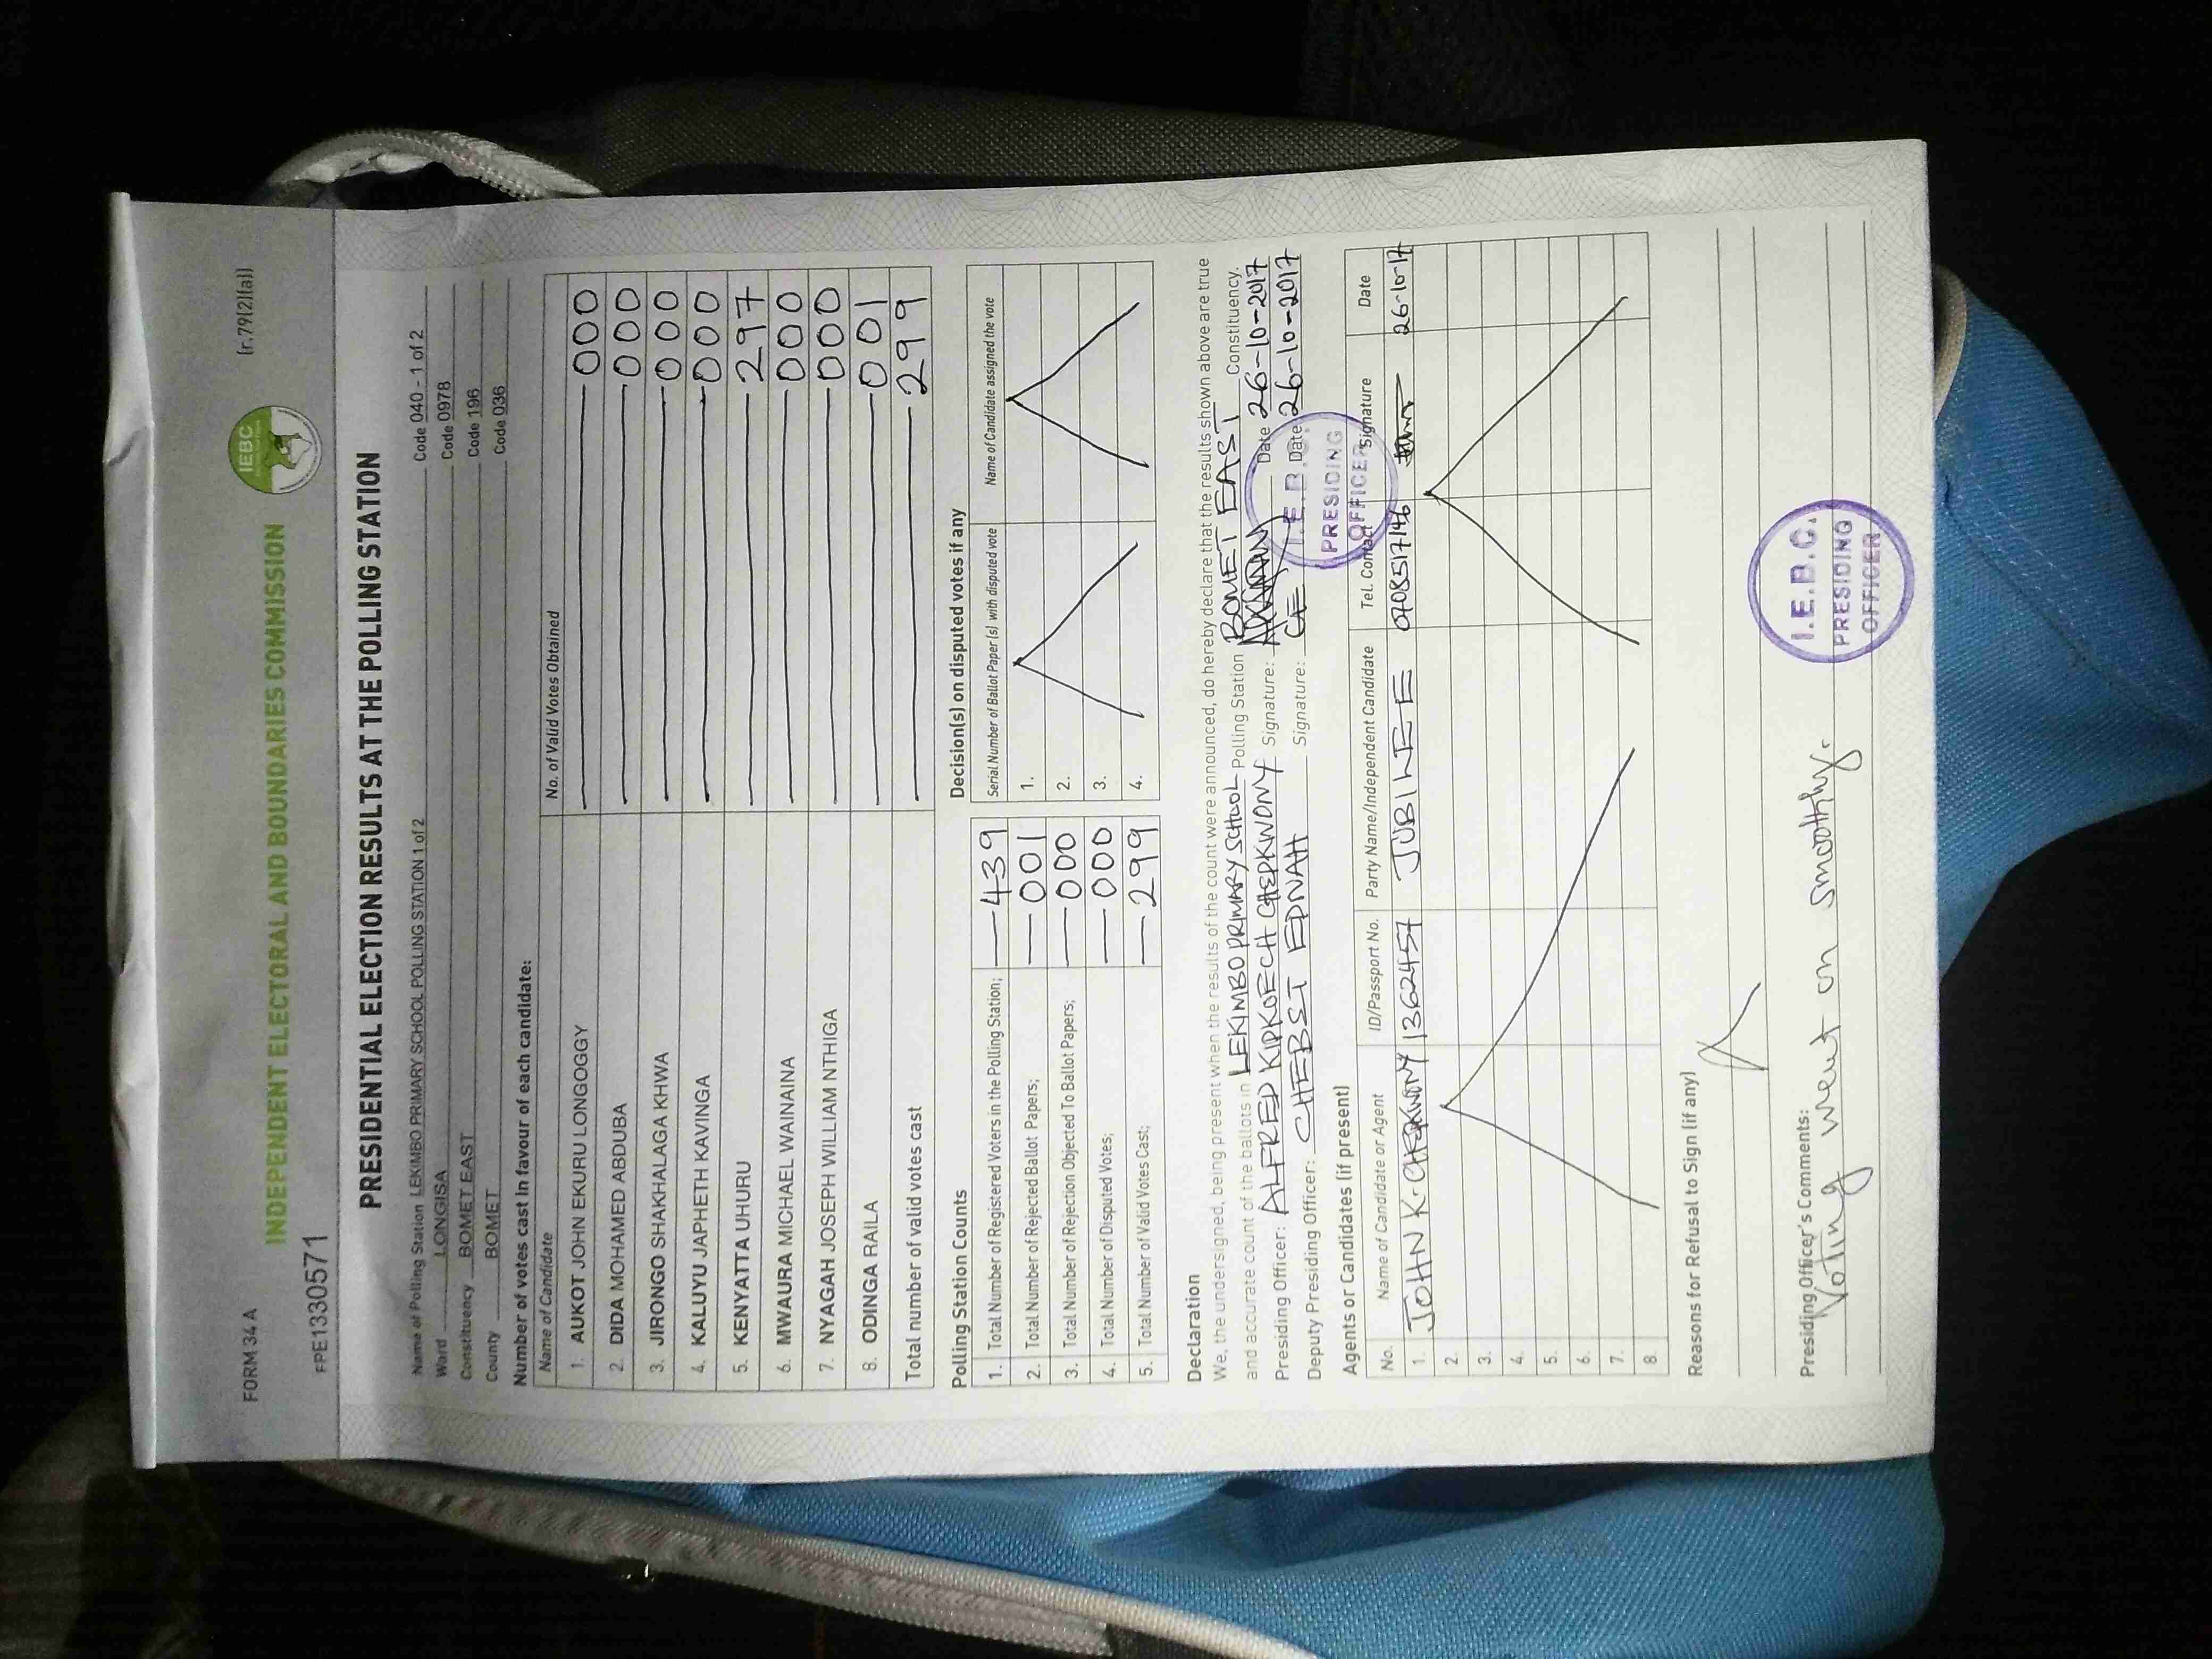 FORM 34 A
(r.79(2)(a))
IEBC
INDEPENDENT ELECTORAL AND BOUNDARIES COMMISSION
FPE1330571
PRESIDENTIAL ELECTION RESULTS AT THE POLLING STATION
Name of Polling Station LEKIMBO PRIMARY SCHOOL POLLING STATION 1 of 2 Code 040 - 1 of 2
Ward LONGISA Code 0978
Constituency BOMET EAST Code 196
County BOMET Code 036
Number of votes cast in favour of each candidate:
Name of Candidate No. of Valid Votes Obtained
1. AUKOT JOHN EKURU LONGOGGY 000
2. DIDA MOHAMED ABDUBA 000
3. JIRONGO SHAKHALAGA KHWA 000
4. KALUYU JAPHETH KAVINGA 000
5. KENYATTA UHURU 297
6. MWAURA MICHAEL WAINAINA 000
7. NYAGAH JOSEPH WILLIAM NTHIGA 000
8. ODINGA RAILA 001
Total number of valid votes cast 299
Polling Station Counts
1. Total Number of Registered Voters in the Polling Station; 439
2. Total Number of Rejected Ballot Papers; 001
3. Total Number of Rejection Objected To Ballot Papers; 000
4. Total Number of Disputed Votes; 000
5. Total Number of Valid Votes Cast; 299
Decision(s) on disputed votes if any
Serial Number of Ballot Paper(s) with disputed vote Name of Candidate assigned the vote
1.
2.
3.
4.
Declaration
We, the undersigned, being present when the results of the count were announced, do hereby declare that the results shown above are true
and accurate count of the ballots in LEKIMBO PRIMARY SCHOOL Polling Station BOMET EAST Constituency.
Presiding Officer: ALFRED KIPKOECH CHEPKWONY Signature: Date 26-10-2017
Deputy Presiding Officer: CHEBET EDNAH Signature: Date 26-10-2017
I.E.B.C.
PRESIDING
OFFICER
Agents or Candidates (if present)
No. Name of Candidate or Agent ID/Passport No. Party Name/Independent Candidate Tel. Contact Signature Date
1. JOHN K. CHEPKWONY 1362457 JUBILEE 0708517146 26-10-17
2.
3.
4.
5.
6.
7.
8.
Reasons for Refusal to Sign (if any)
Presiding Officer's Comments:
Voting went on smoothly.
I.E.B.C.
PRESIDING
OFFICER